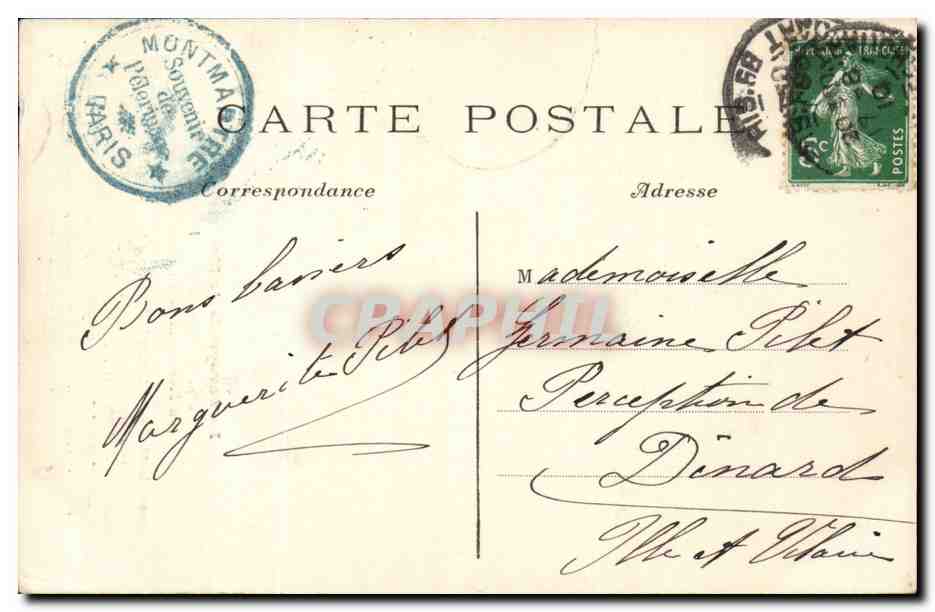 MONTMARTRE
Souvenir
de
Pèlerinage
PARIS
CARTE POSTALE
Correspondance
Adresse
POSTES
Bons baisers
Marguerite Pilet
Mademoiselle
Germaine Pilet
Perception de
Dinard
Ille et Vilaine
CPAPHIL